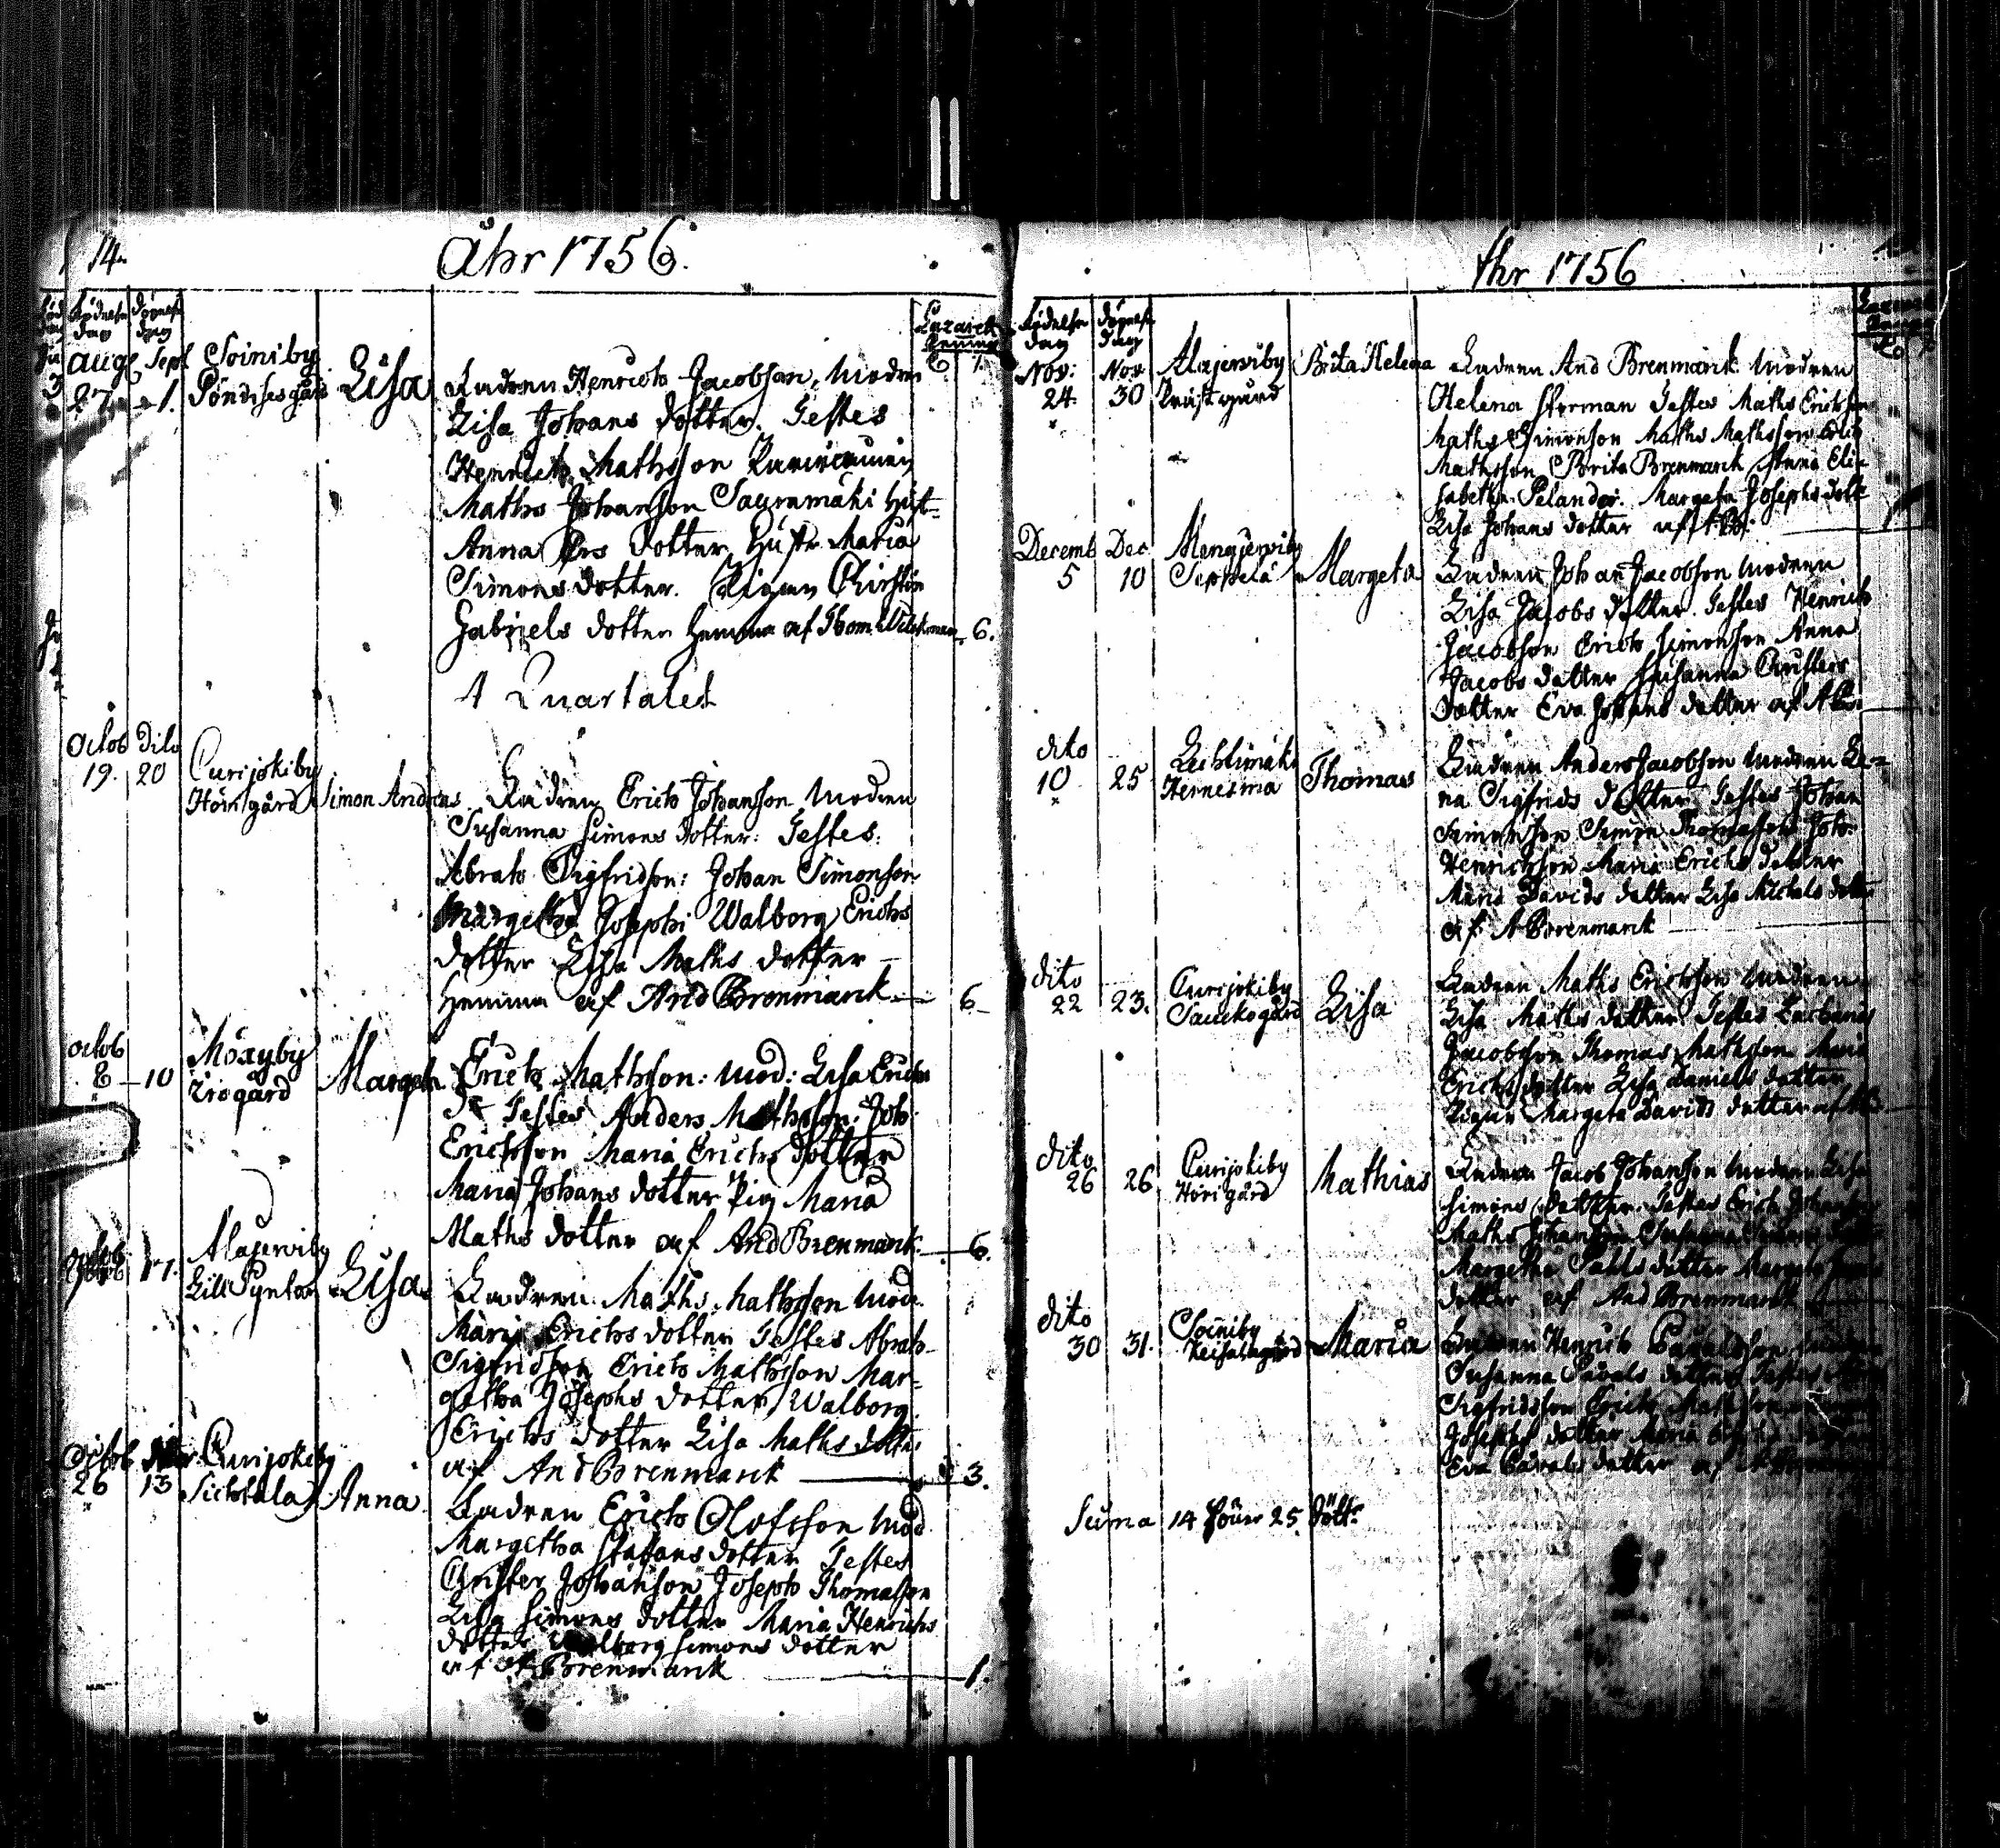 14.
Åhr 1756.
Födelse dag
Döpnelse dag
Lazarets Penning
Aug Sept Soiniby
27 1. Pöndisesgård Lisa
Fadren Henrich Jacobson, Modren
Lisa Johans dotter. Testes
Henrich Mathsson
Maths Johanson Sayramäki Hust
Anna Ers dotter Hustr Maria
Simons dotter. Pigan Christin
Gabriels dotter hemma af Thom Wilckman 6.
4 Quartalet
Octob Dito
19. 20 Curijokiby
Höri gård Simon Andreas
Fadren Erich Johanson Modren
Susanna Simons dotter: Testes:
Abrah Sigfridson: Johan Simonson
Margetha Josephi Walborg Erichs
dotter Lisa Maths dotter
Hemma af And Brenmarck 6
Octob Möxyby
8 10 Margeta
Erich Mathsson: Mod: Lisa Erichs
Dr Testes Anders Mathsson: Joh
Erichsson Maria Erichs dotter
Maria Johans dotter Pig Maria
Maths dotter af And Brenmarck 6.
Octob 17. Alajerviby
Lill Pynton Lisa
Fadren Maths Mathsson Mod
Maria Erichs dotter Testes Abrah
Sigfridson Erich Mathsson Mar-
getha Josephs dotter Walborg
Erichs dotter Lisa Maths dotter
af And Brenmarck 3.
Octob Curijokiby
26 13 Anna
Fadren Erich Olofsson Mod
Margetha Stafans dotter Testes
Christer Johanson Joseph Thomasson
Lisa Simons dotter Maria Henrichs
dotter Walborg Simons dotter
af A Brenmarck 1.
Åhr 1756
Födelse dag
Döpelse dag
Nov: Nov Alajerviby
24. 30 Prästgård Brita Helena
Fadren And Brenmarck Modren
Helena Forman Testes Maths Erichson
Maths Simonson Maths Mathsson Erich
Mathsson Brita Brenmarck Anna Eli-
sabetha Pelander. Margeta Josephs dott
Lisa Johans dotter af ABr.
Decemb Dec Mengjerviby
5 10 Seppelä Margeta
Fadren Johan Jacobson Modren
Lisa Jacobs dotter. Testes Henrich
Jacobson Erich Simonson Anna
Jacobs dotter Susanna Christers
dotter Eva Johans dotter af A Br.
dito
10 25 Lechtimäki
Hernesma Thomas
Fadren Anders Jacobson Modren Le-
na Sigfrids dotter Testes Johan
Simonson Simon Thomasson Joh:
Henrichson Maria Erichs dotter
Maria Davids dotter Lisa Michels dotter
af A Brenmarck
dito
22 23. Curijokiby
Sauckogård Lisa
Fadren Maths Erichson Modren
Lisa Maths dotter Testes Zacharias
Jacobsson Thomas Mathsson Maria
Erichs dotter Lisa Daniels dotter
Pigan Margeta Davids dotter af AB
dito
26 26 Curijokiby
Höri gård Mathias
Fadren Jacob Johanson Modren Lisa
Simons dotter Testes Erich Johanson
Maths Johanson Susanna Simons
Margetha Pahls dotter Margeta
dotter af And Brenmarck
dito
30 31. Soiniby
Maria
Fadren Henrich Påvalsson
Susanna Påvals dotter Testes
Sigfridsson Erich Mathson
Josephs dotter Maria
Eva Påvals dotter af A
Suma 14 Söner 25. Dött: